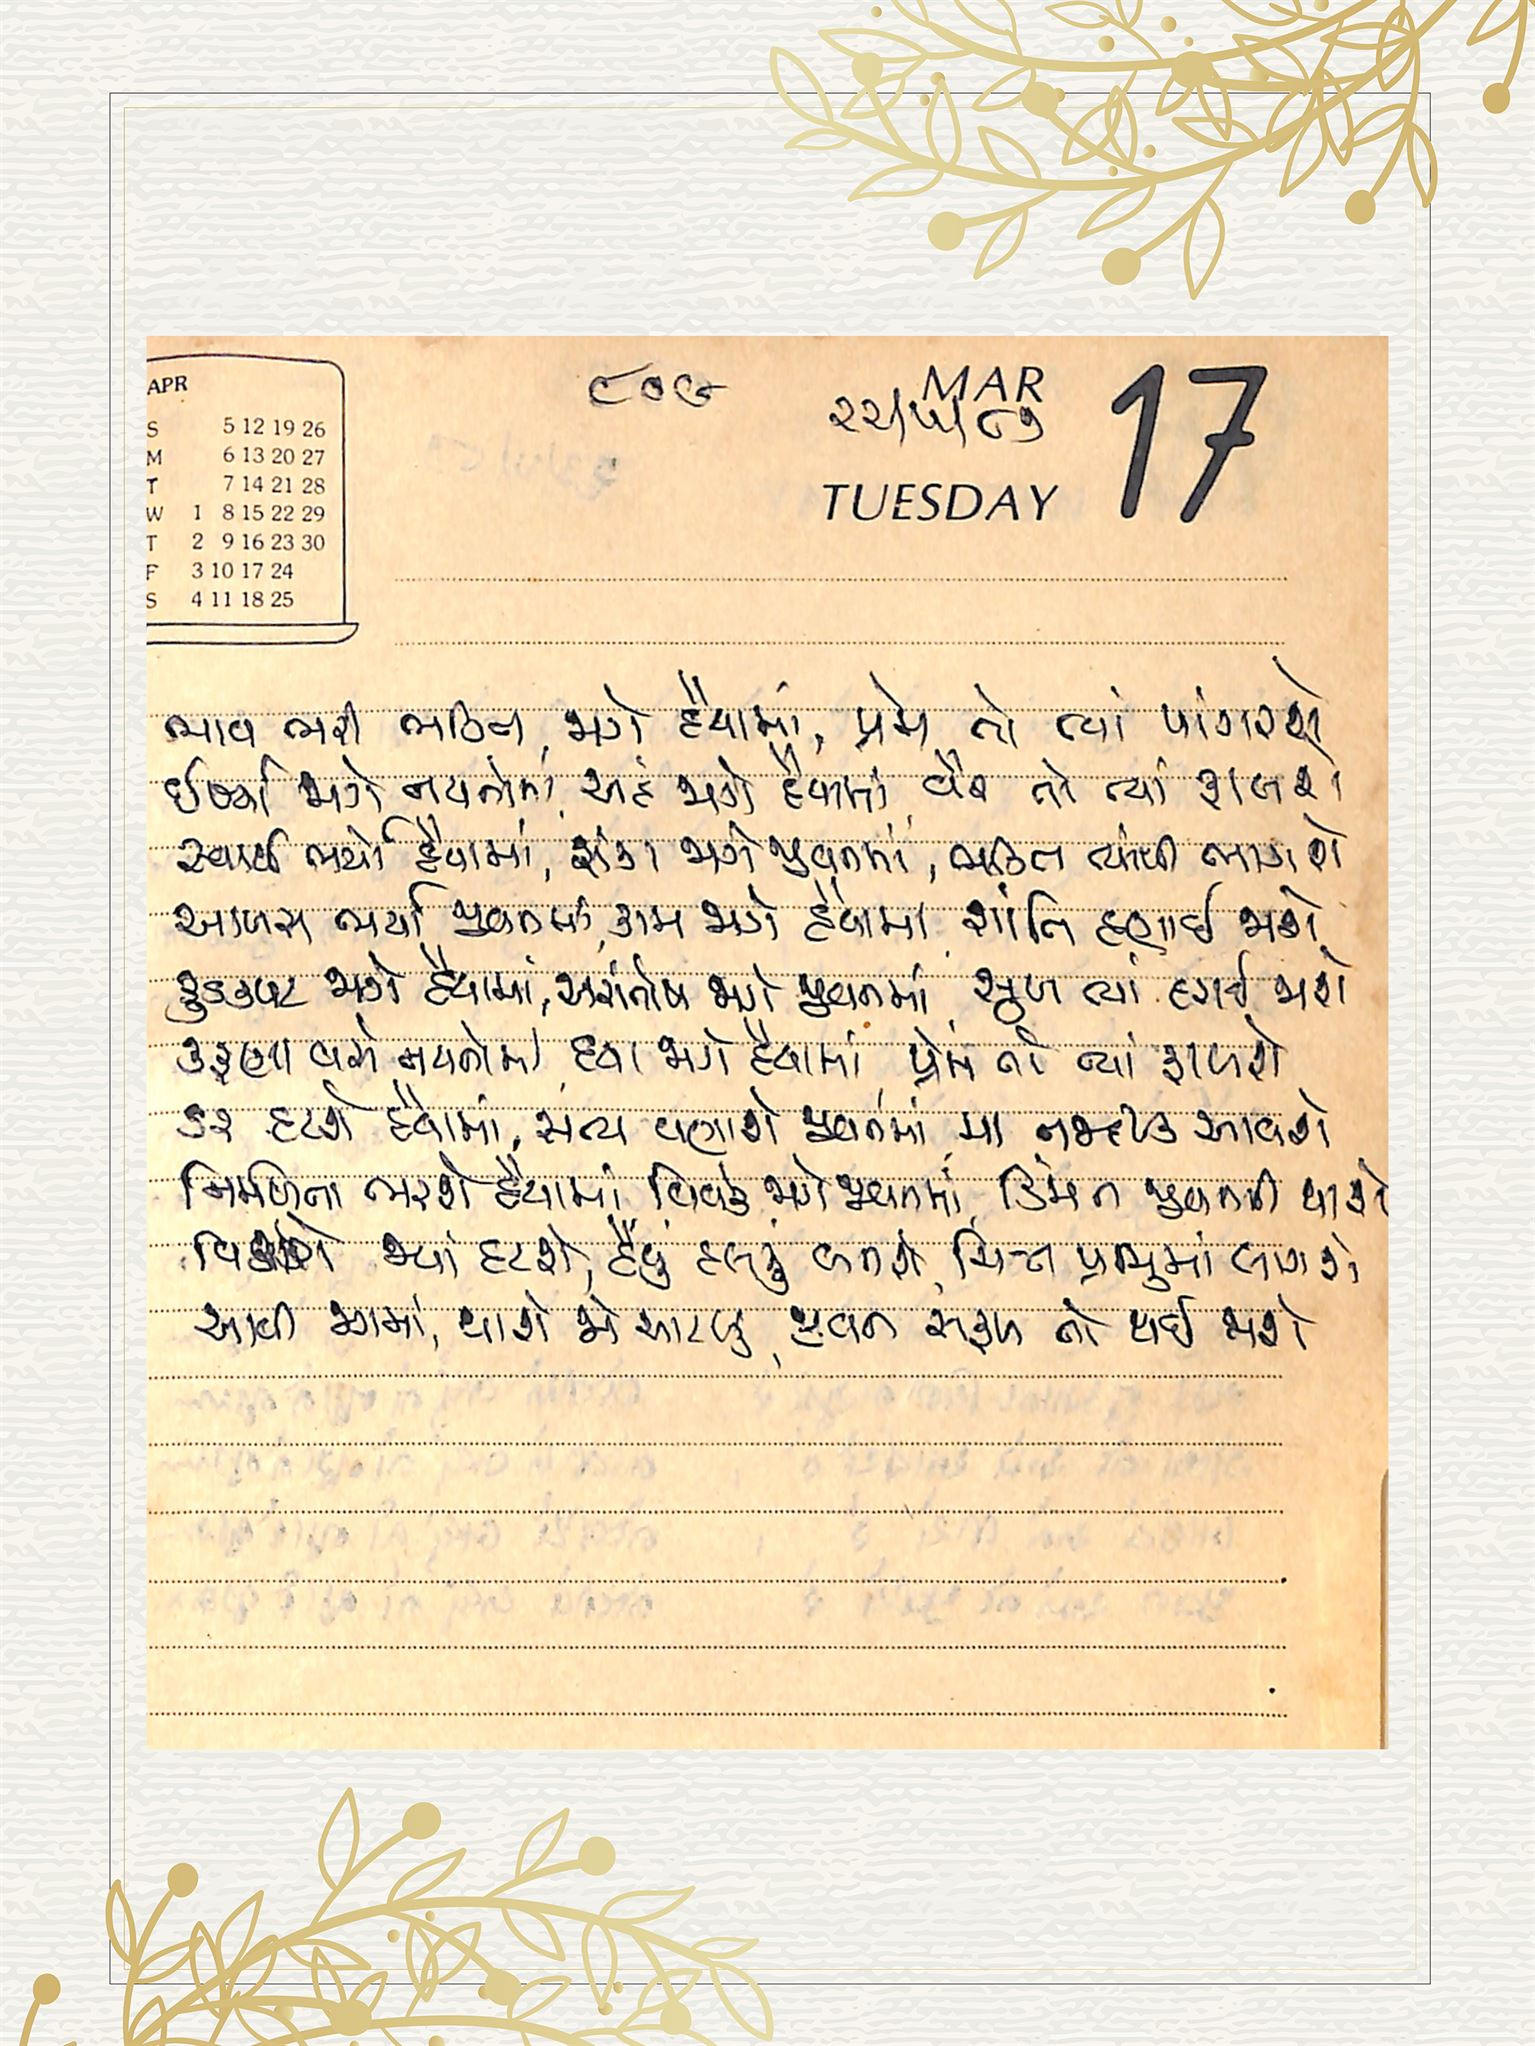 APR
S 5 12 19 26
M 6 13 20 27
T 7 14 21 28
W 1 8 15 22 29
T 2 9 16 23 30
F 3 10 17 24
S 4 11 18 25
૮૦૯
MAR 17
૨૨/૫/૮૭
TUESDAY
ભાવ ભરી ભક્તિ, જાગે હૈયામાં, પ્રેમ તો ત્યાં પાંગરશે
ઈર્ષ્યા જાગે નયનોમાં, અહં જાગે હૈયામાં વૈર તો ત્યાં ફાલશે
સ્વાર્થ ભર્યો હૈયામાં, શંકા જાગે જીવનમાં, ભક્તિ ત્યાંથી ભાગશે
આળસ ભર્યા જીવનમાં, કામ જાગે હૈયામાં શાંતિ હણાઈ જાશે
કુડકપટ જાગે હૈયામાં, અસંતોષ જાગે જીવનમાં સુખ ત્યાં હરાઈ જાશે
કરૂણા વસે નયનોમાં, દયા જાગે હૈયામાં પ્રેમ તો ત્યાં ફાળશે
ડર હટશે હૈયામાં, સત્ય વણાશે જીવનમાં, મા નજદીક આવશે
નિર્મળતા ભરશે હૈયામાં વિવેક જાગે જીવનમાં, કિંમત જીવનની થાશે
વિકારો જ્યાં હટશે, હૈયું હલકું બનશે, ચિત્ત પ્રભુમાં લાગશે
આવી જગમાં, થાશે જો આટલું, જીવન સફળ તો થઈ જાશે